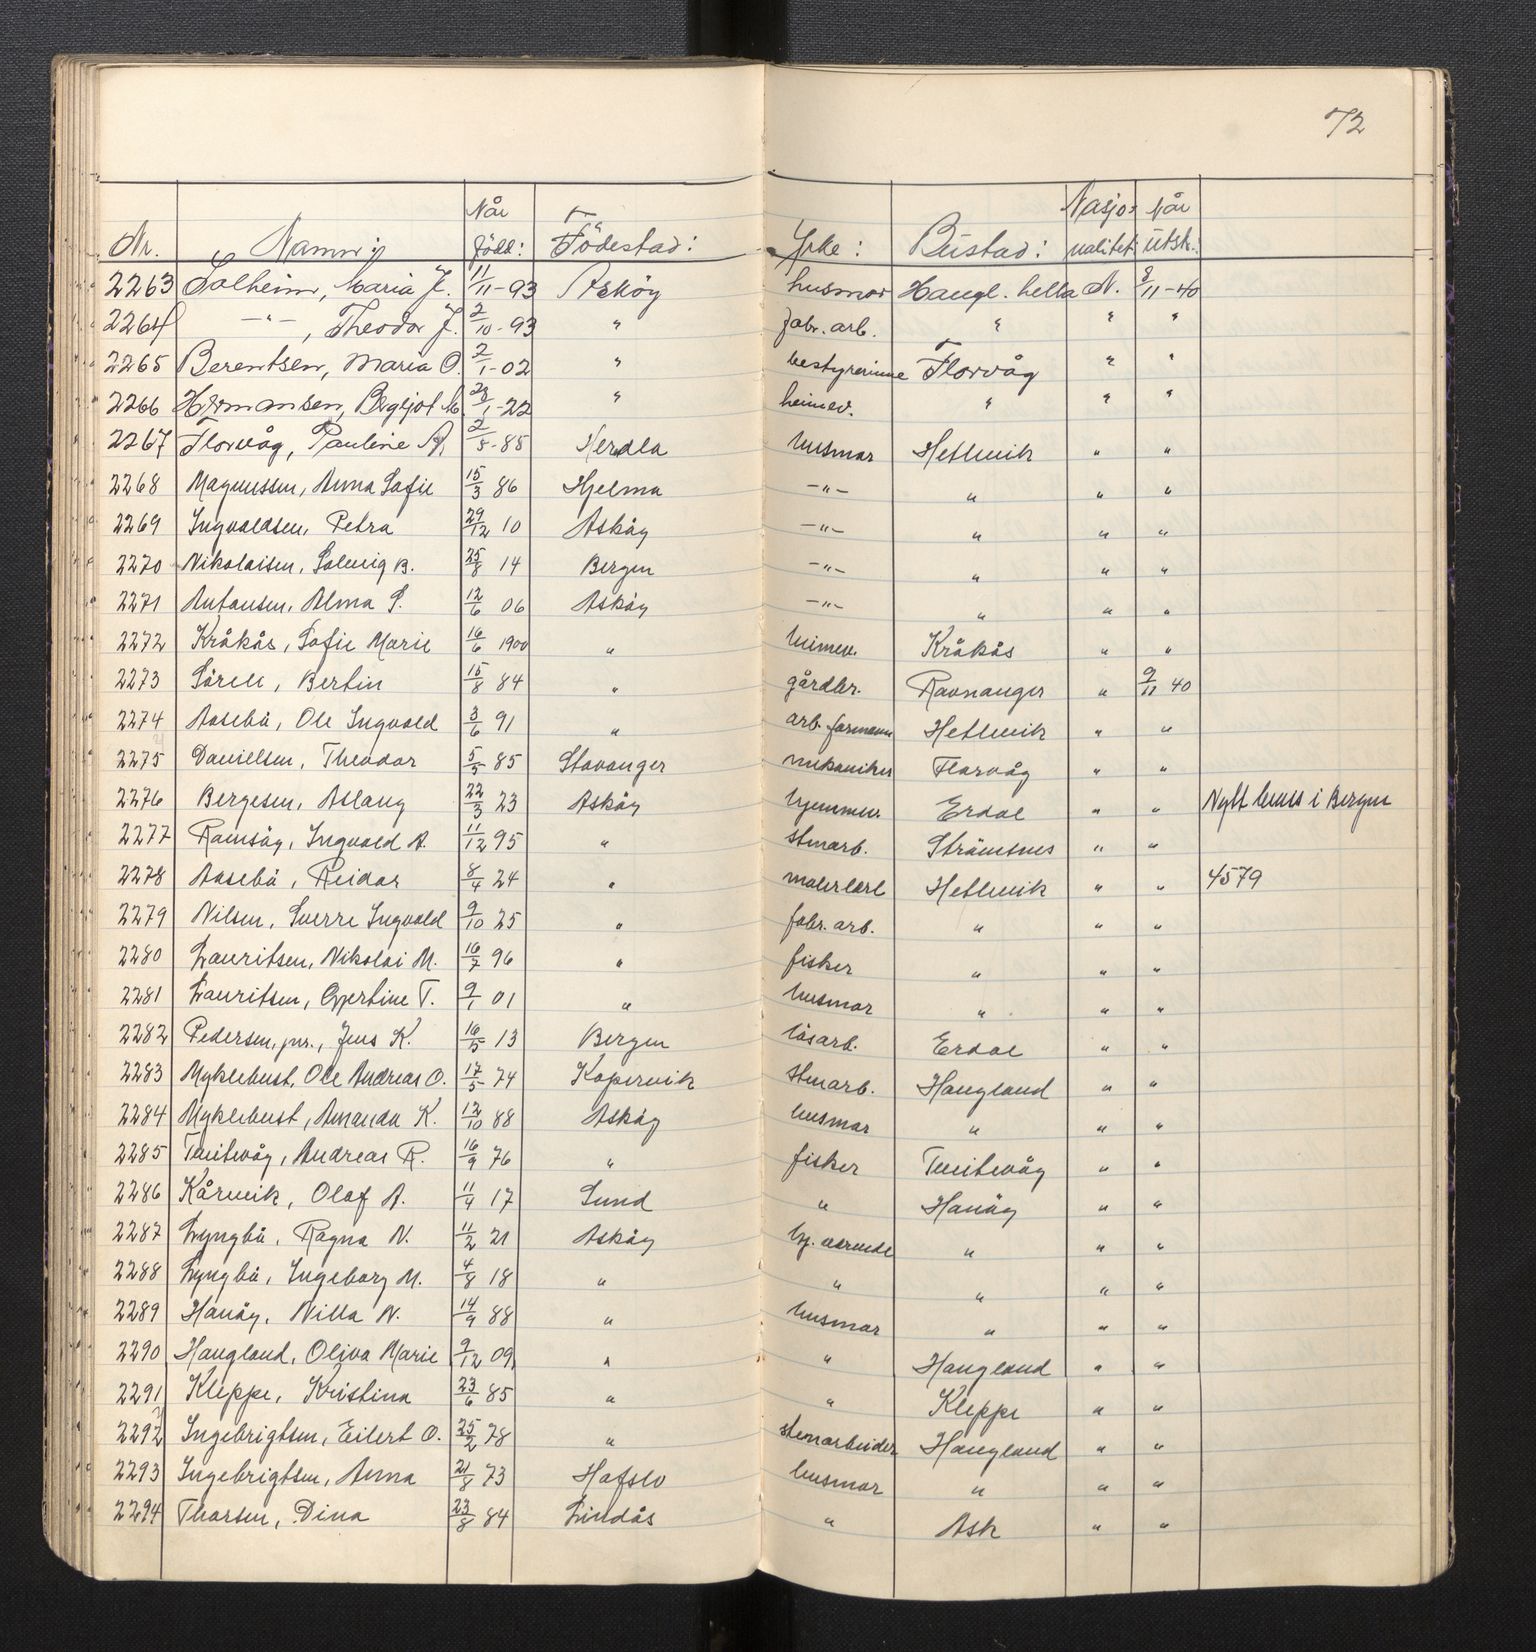 72
Nr. Namn: Når född: Födestad: Yrke: Bustad: Nasjonalitet: Når utsk.:
2263 Solheim, Maria J. 11/11-93 Asköy husmor Haugl. hella N. 8/11-40
2264 -"-, Theodor J. 2/10-93 " fabr. arb. " " "
2265 Berentsen, Maria O. 2/1-02 " bestyrerinne Florvåg " "
2266 Hermansen, Bergljot M. 23/1-22 " heimev. " " "
2267 Florvåg, Pauline A. 2/5-85 Herdla husmor Hetlevik " "
2268 Magnussen, Anna Sofie 15/3 86 Hjelma -"- " " "
2269 Ingvaldsen, Petra 29/12 10 Asköy -"- " " "
2270 Nikolaisen, Solveig B. 25/8 14 Bergen -"- " " "
2271 Antonsen, Alma S. 12/6 06 Asköy -"- " " "
2272 Kråkås, Sofie Marie 16/6 1900 " heimev. Kråkås " "
2273 Söreli, Bertin 15/8 84 " gårdbr. Ravnanger " 9/11 40
2274 Aasebö, Ole Ingvald 3/6 91 " arb. formann Hetlevik " "
2275 Danielsen, Theodor 5/5 85 Stavanger mekaniker Florvåg " "
2276 Bergesen, Aslaug 22/3 23 Asköy hjemmev. Erdal " " Nytt bevis i Bergen
2277 Ramsöy, Ingvald A. 11/12 95 " stenarb. Strömsnes " "
2278 Aasebö, Reidar 8/4 24 " malerlærl Hetlevik " " 4579
2279 Nilsen, Sverre Ingvald 9/10 25 " fabr. arb. " " "
2280 Lauritsen, Nikolai M. 16/7 96 " fisker " " "
2281 Lauritsen, Gjertine T. 9/1 01 " husmor " " "
2282 Pedersen, jnr., Jens K. 16/5 13 Bergen lösarb. Erdal " "
2283 Myklebust, Ole Andreas O. 17/5 74 Kopervik stenarb. Haugland " "
2284 Myklebust, Amanda K. 12/10 88 Asköy husmor " " "
2285 Tveitevåg, Andreas R. 16/9 76 " fisker Tveitevåg " "
2286 Kårvik, Olaf A. 11/4 17 Sund " Hanöy " "
2287 Lyngbö, Ragna N. 11/2 21 Asköy hj. værende " " "
2288 Lyngbö, Ingeborg M. 4/8 18 " " " " "
2289 Hanöy, Nilla N. 14/9 88 " husmor " " "
2290 Haugland, Oliva Marie 9/12 09 " " Haugland " "
2291 Kleppe, Kristina 23/6 85 " " Kleppe " "
2292 Ingebrigtsen, Eilert O. 25/2 78 " stenarbeider Haugland " "
2293 Ingebrigtsen, Anna 21/8 73 Hafslo husmor " " "
2294 Thorsen, Dina 23/8 84 Lindås " Ask " "